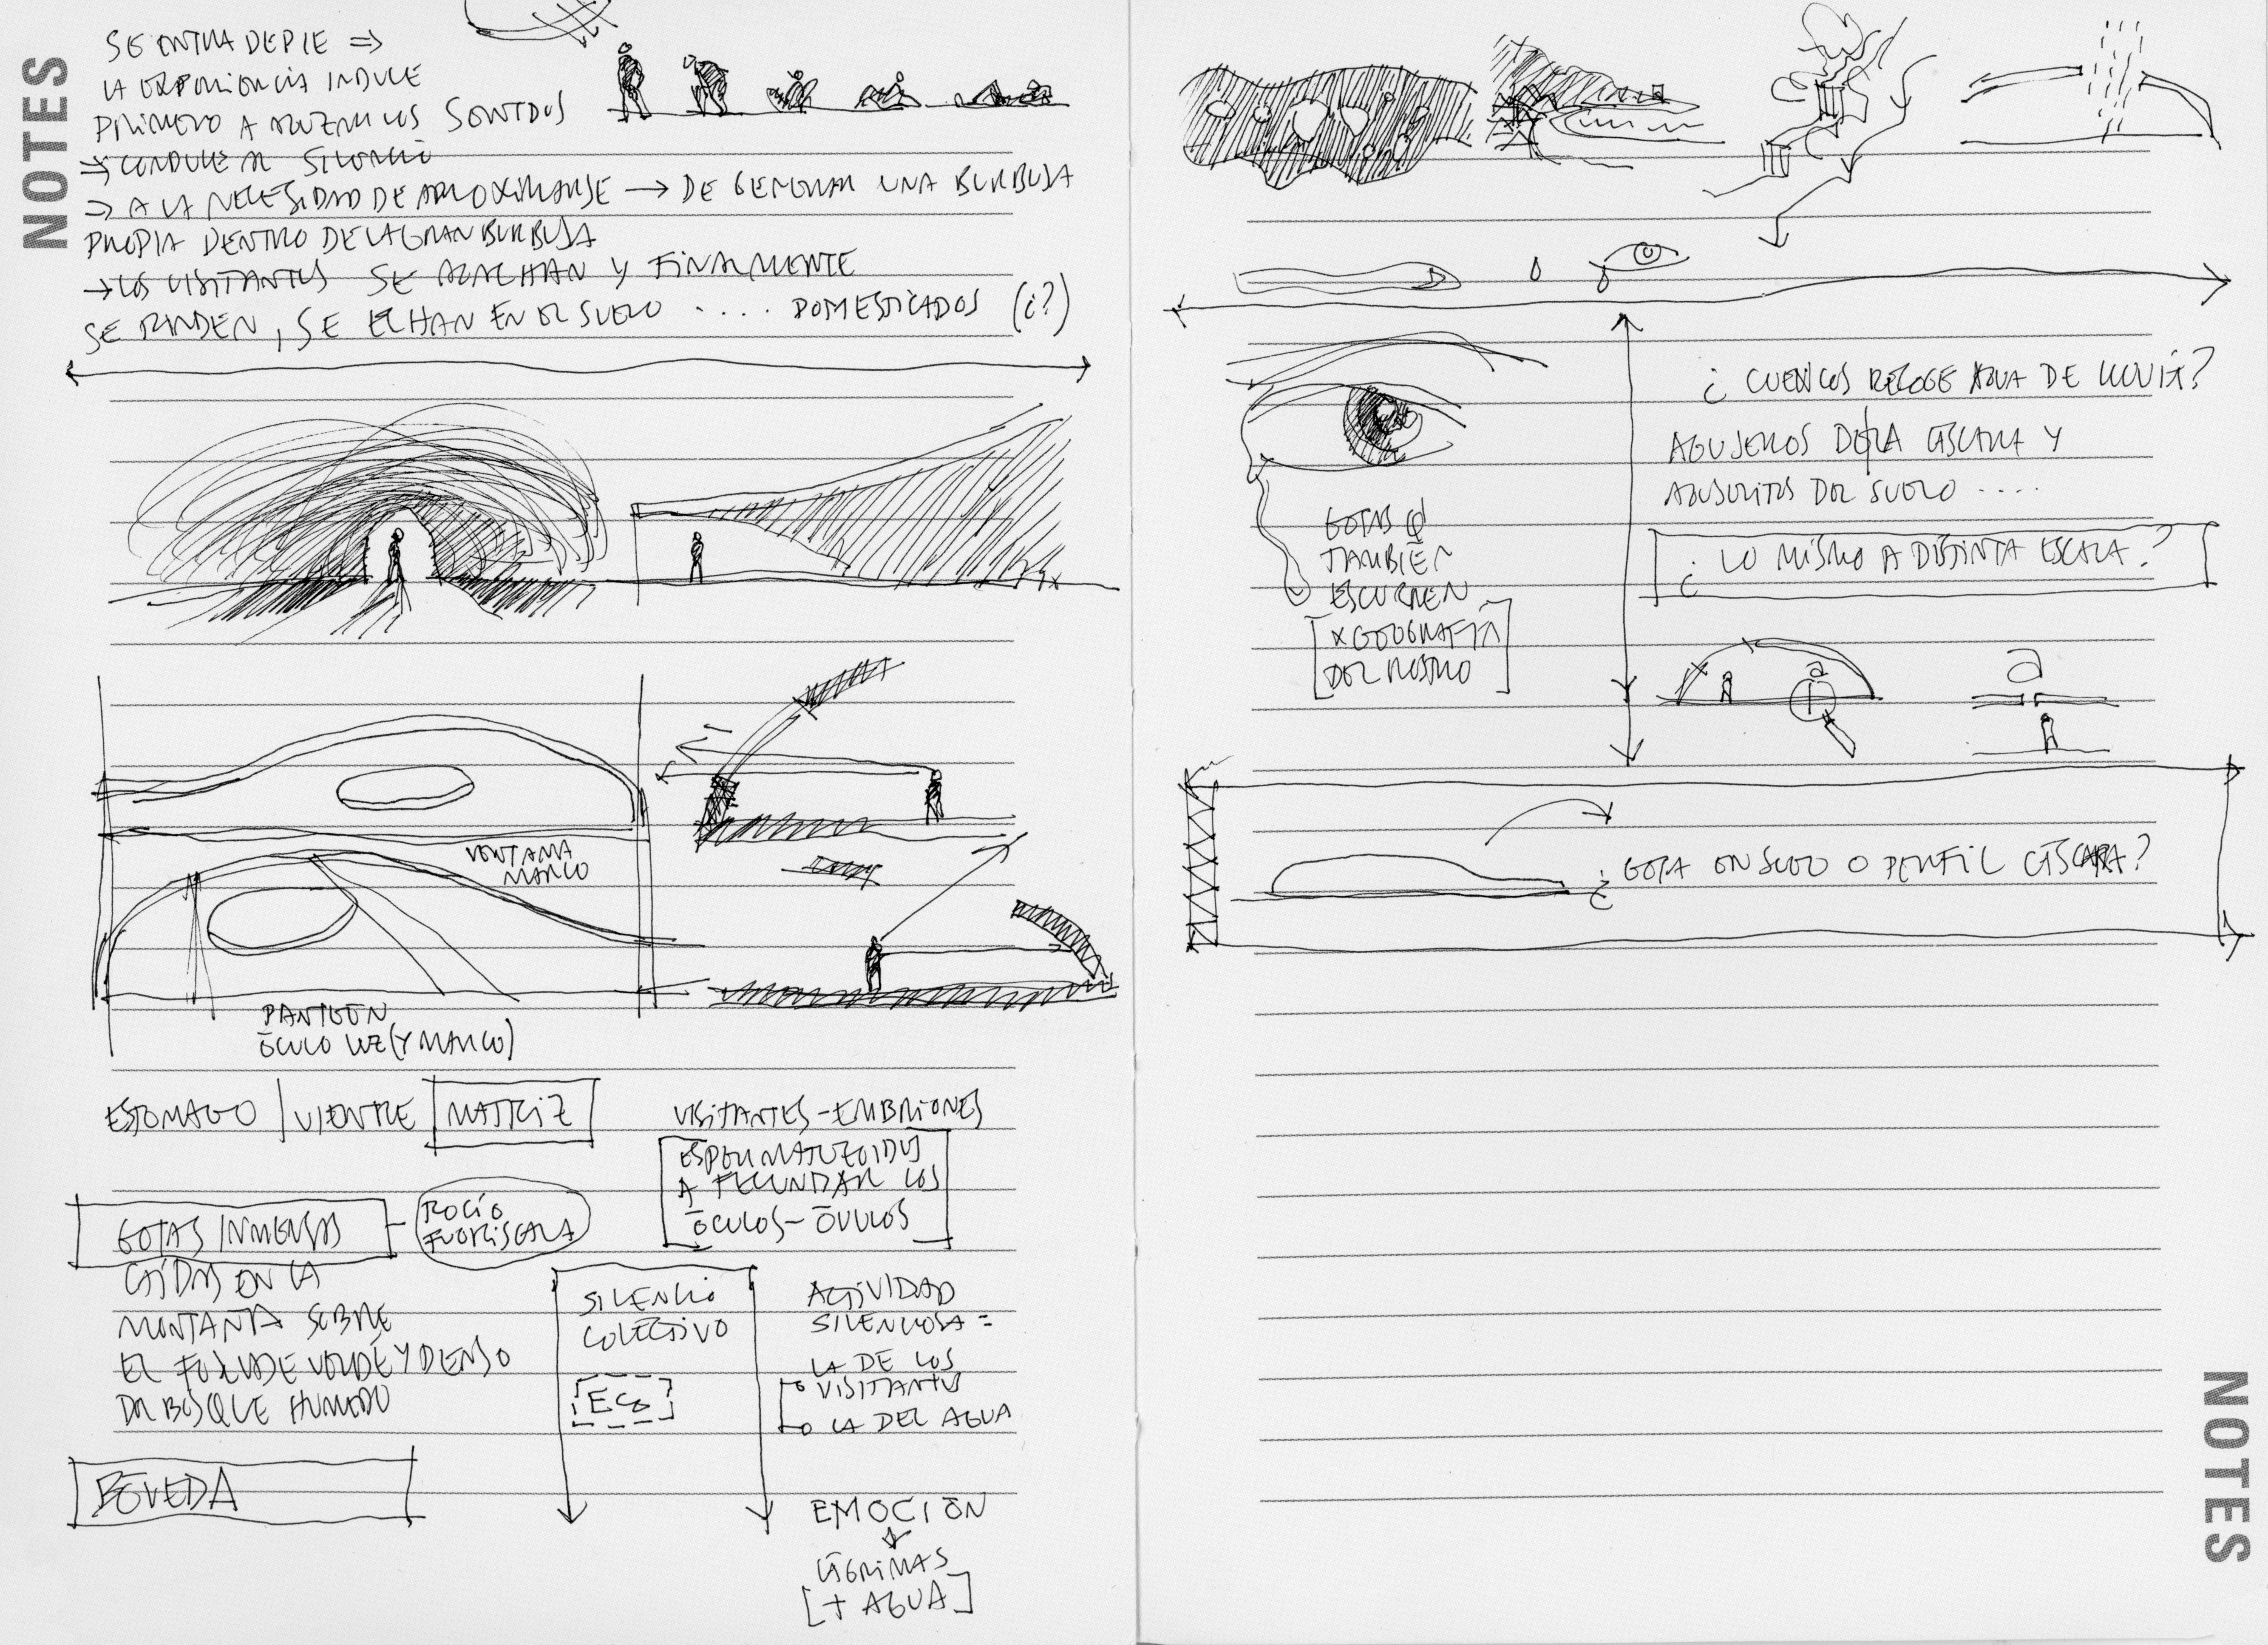 NOTES
SE ENTRA DE PIE ⇒
LA EXPERIENCIA INDUCE
PRIMERO A AGUZAR LOS SENTIDOS
⇒ CONDUCE AL SILENCIO
⇒ A LA NECESIDAD DE APROXIMARSE → DE GENERAR UNA BURBUJA
PROPIA DENTRO DE LA GRAN BURBUJA
→ LOS VISITANTES SE AGACHAN Y FINALMENTE
SE RINDEN, SE ECHAN EN EL SUELO .... DOMESTICADOS (¿?)
VENTANA
MARCO
PANTEÓN
ÓCULO LUZ (Y MARCO)
ESTOMAGO | VIENTRE | MATRIZ
VISITANTES - EMBRIONES
ESPERMATOZOIDES
A FECUNDAR LOS
ÓCULOS - ÓVULOS
GOTAS INMENSAS
ROCÍO
CAÍDAS EN LA
MONTAÑA SOBRE
EL FOLLAJE VERDE Y DENSO
DEL BOSQUE HUMEDO
SILENCIO
COLECTIVO
ECO
ACTIVIDAD
SILENCIOSA =
LA DE LOS
VISITANTES
LA DEL AGUA
BÓVEDA
EMOCIÓN
LÁGRIMAS
[+ AGUA]
¿ CUENCOS RECOGE AGUA DE LLUVIA?
AGUJEROS DE LA CÁSCARA Y
AGUJERITOS DEL SUELO ....
¿ LO MISMO A DISTINTA ESCALA?
GOTAS Q
TAMBIÉN
ESCURREN
[X GEOGRAFÍA
DEL ROSTRO]
a
a
¿ GOTA EN SUELO O PERFIL CÁSCARA?
NOTES